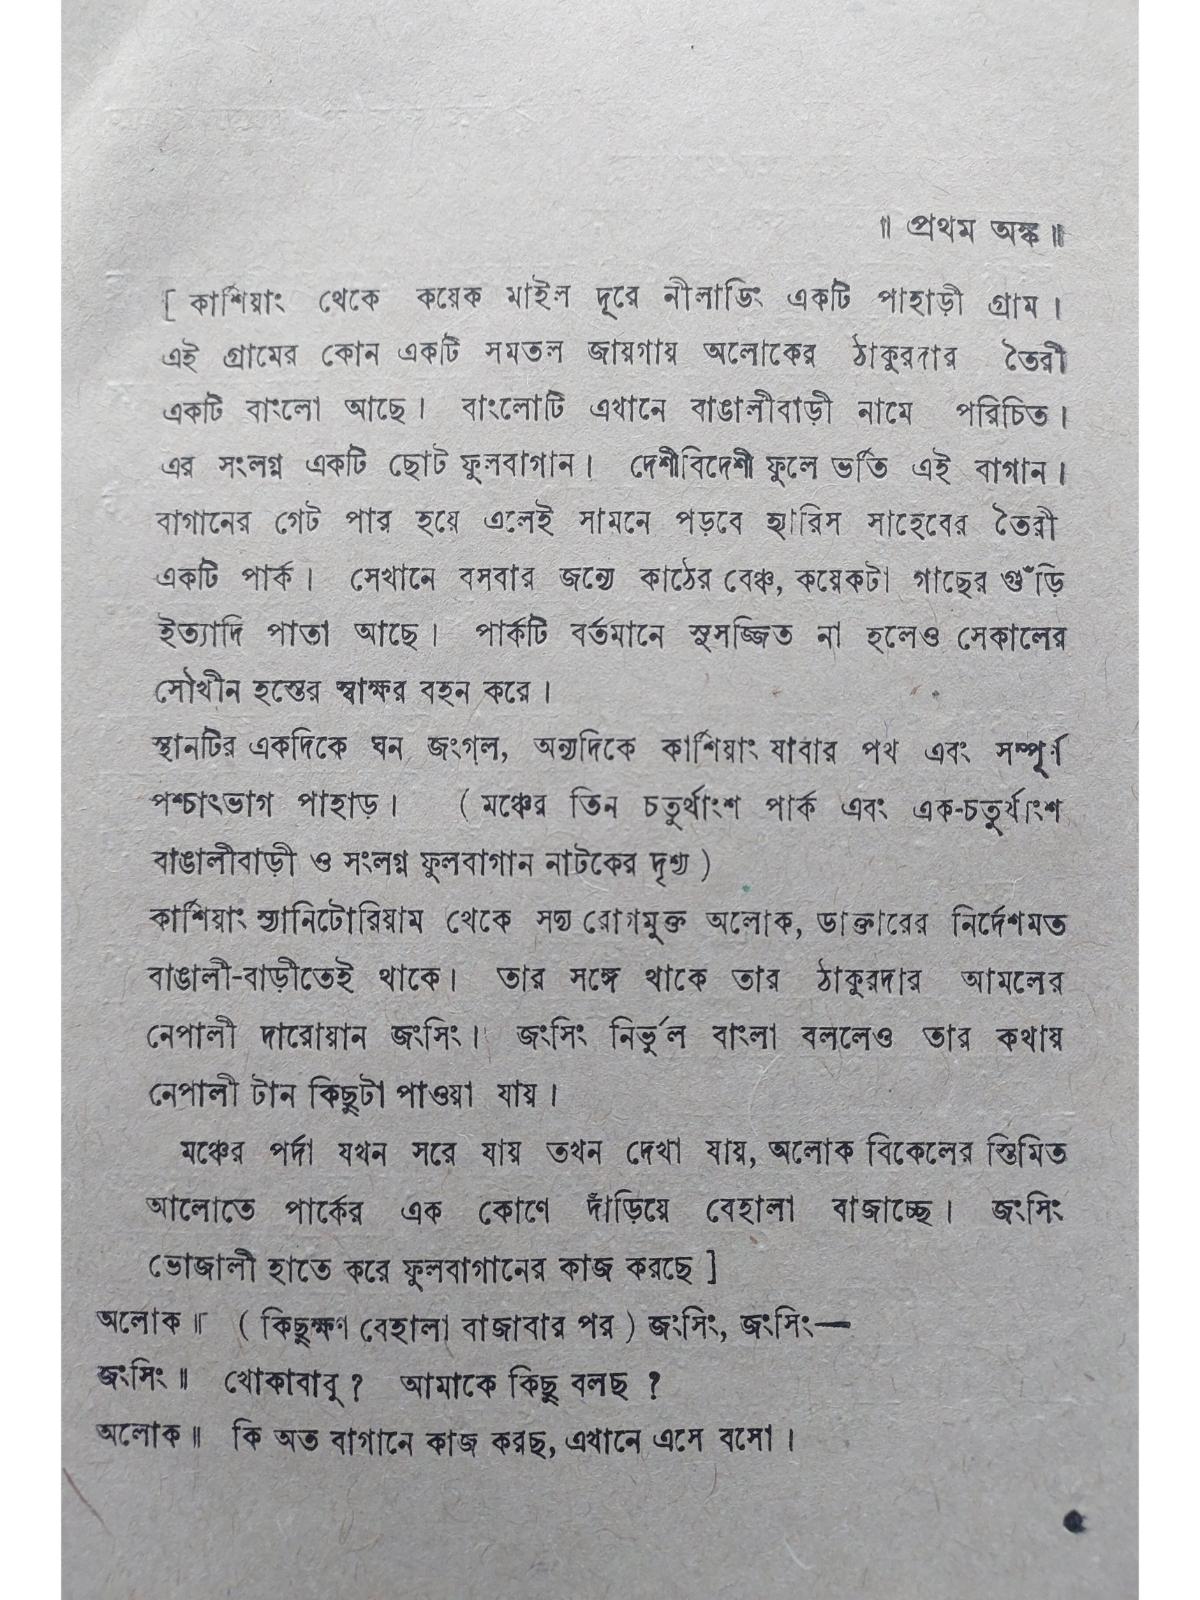 ॥ প্রথম অঙ্ক ॥
[ কার্শিয়াং থেকে কয়েক মাইল দূরে নীলাডিং একটি পাহাড়ী গ্রাম ।
এই গ্রামের কোন একটি সমতল জায়গায় অলোকের ঠাকুরদার তৈরী
একটি বাংলো আছে । বাংলোটি এখানে বাঙালীবাড়ী নামে পরিচিত ।
এর সংলগ্ন একটি ছোট ফুলবাগান । দেশীবিদেশী ফুলে ভর্তি এই বাগান ।
বাগানের গেট পার হয়ে এলেই সামনে পড়বে হ্যারিস সাহেবের তৈরী
একটি পার্ক । সেখানে বসবার জন্যে কাঠের বেঞ্চ, কয়েকটা গাছের গুঁড়ি
ইত্যাদি পাতা আছে । পার্কটি বর্তমানে সুসজ্জিত না হলেও সেকালের
সৌখীন হস্তের স্বাক্ষর বহন করে ।
স্থানটির একদিকে ঘন জংগল, অন্যদিকে কার্শিয়াং যাবার পথ এবং সম্পূর্ণ
পশ্চাৎভাগ পাহাড় । ( মঞ্চের তিন চতুর্থাংশ পার্ক এবং এক-চতুর্থাংশ
বাঙালীবাড়ী ও সংলগ্ন ফুলবাগান নাটকের দৃশ্য )
কার্শিয়াং স্যানিটোরিয়াম থেকে সদ্য রোগমুক্ত অলোক, ডাক্তারের নির্দেশমত
বাঙালী-বাড়ীতেই থাকে । তার সঙ্গে থাকে তার ঠাকুরদার আমলের
নেপালী দারোয়ান জংসিং । জংসিং নির্ভুল বাংলা বললেও তার কথায়
নেপালী টান কিছুটা পাওয়া যায় ।
মঞ্চের পর্দা যখন সরে যায় তখন দেখা যায়, অলোক বিকেলের স্তিমিত
আলোতে পার্কের এক কোণে দাঁড়িয়ে বেহালা বাজাচ্ছে । জংসিং
ভোজালী হাতে করে ফুলবাগানের কাজ করছে ]
অলোক ॥ ( কিছুক্ষণ বেহালা বাজাবার পর ) জংসিং, জংসিং—
জংসিং ॥ খোকাবাবু ? আমাকে কিছু বলছ ?
অলোক ॥ কি অত বাগানে কাজ করছ, এখানে এসে বসো ।